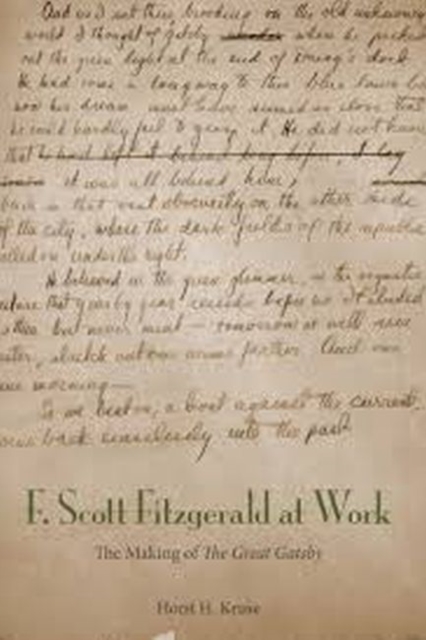 And as I sat there brooding on the old unknown
world I thought of Gatsby when he picked
out the green light at the end of Daisy's dock
He had come a long way to this blue lawn
his dream must have seemed so close that
he could hardly fail to grasp it. He did not know
that
it was all behind him,
back in that vast obscurity on the other side
of the city, where the dark fields of the republic
under the night.
He believed in the green glimmer, in the orgastic
future that year by year recedes before us It eluded
us then but never mind — tomorrow we will run
faster, stretch out our arms farther And one
morning—
So we beat on, a boat against the current,
back ceaselessly into the past
F. Scott Fitzgerald at Work
The Making of The Great Gatsby
Horst H. Kruse